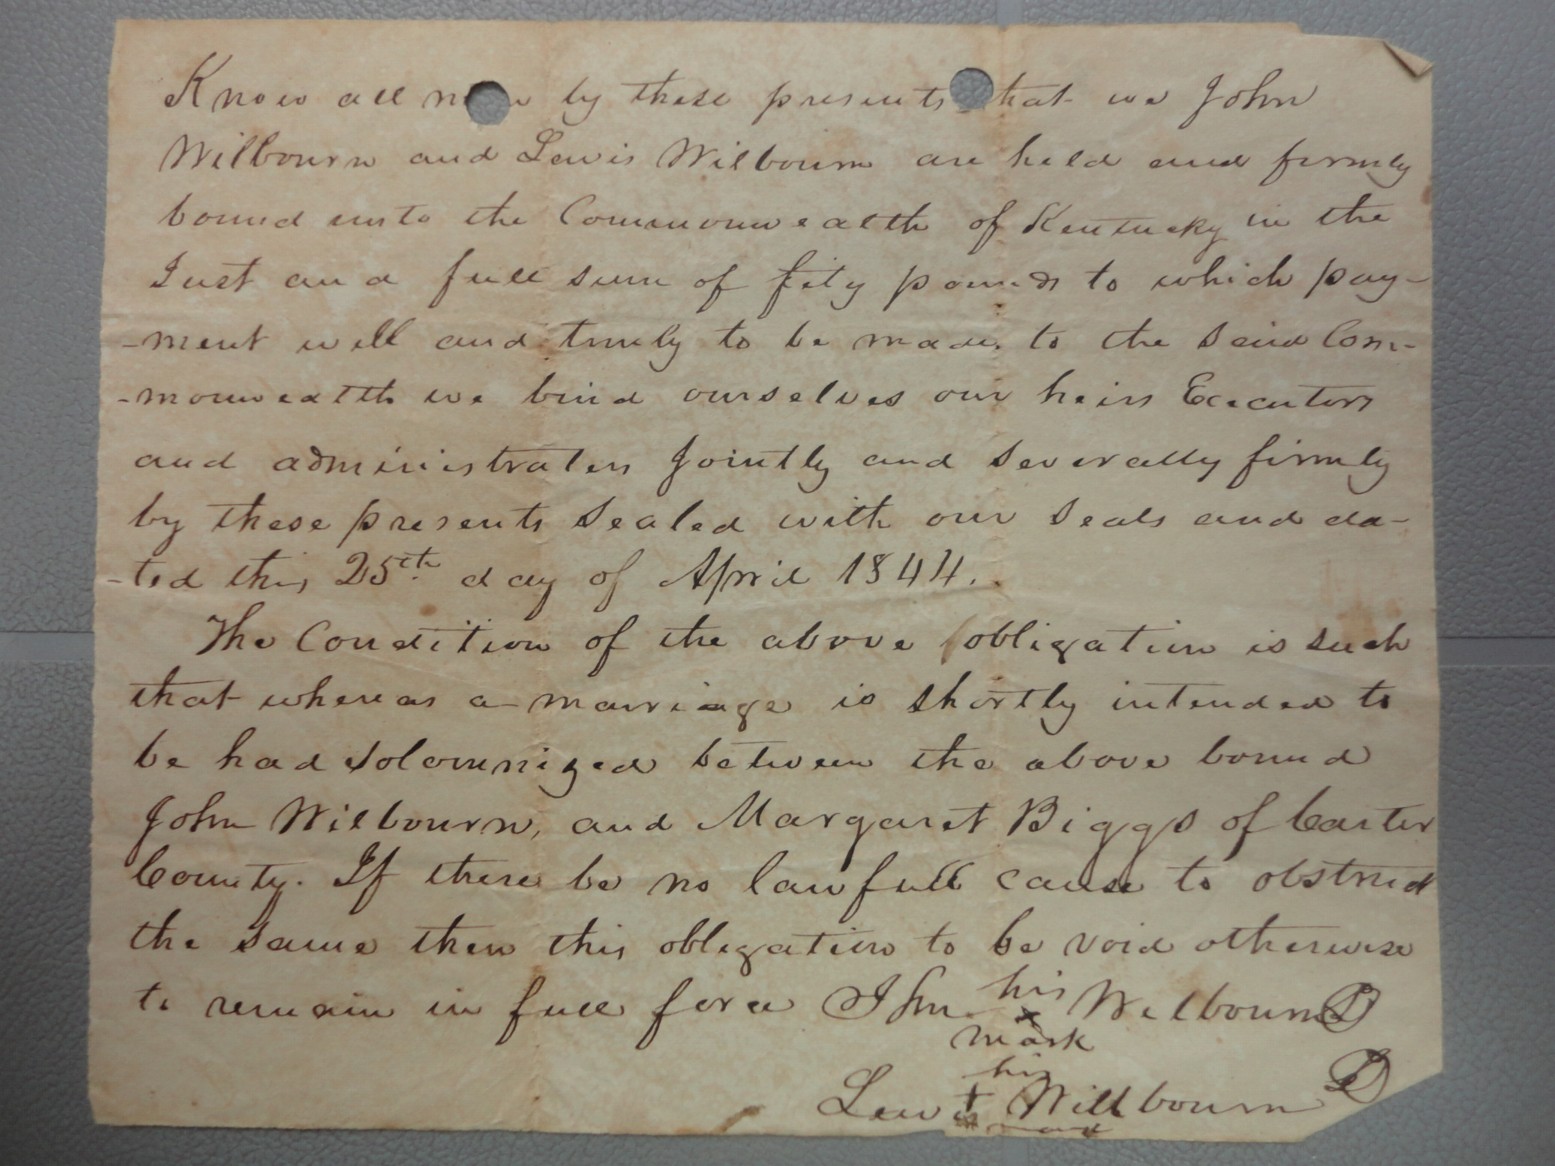 Know all men by these presents that we John
Wilbourn and Lewis Wilbourn are held and firmly
bound unto the Commonwealth of Kentucky in the
Just and full sum of fity pounds to which pay-
-ment well and truly to be made, to the said Com-
-monwealth we bind ourselves our heirs Executors
and administraters Jointly and severally firmly
by these presents sealed with our seals and da-
-ted this 25th day of April 1844.
The Condition of the above obligation is such
that whereas a marriage is shortly intended to
be had solomnized between the above bound
John Wilbourn, and Margaret Biggs of Carter
County. If there be no lawfull cause to obstruct
the same then this obligation to be void otherwise
to remain in full force John his x mark Welbourn
Lewis his + mark Willbourn